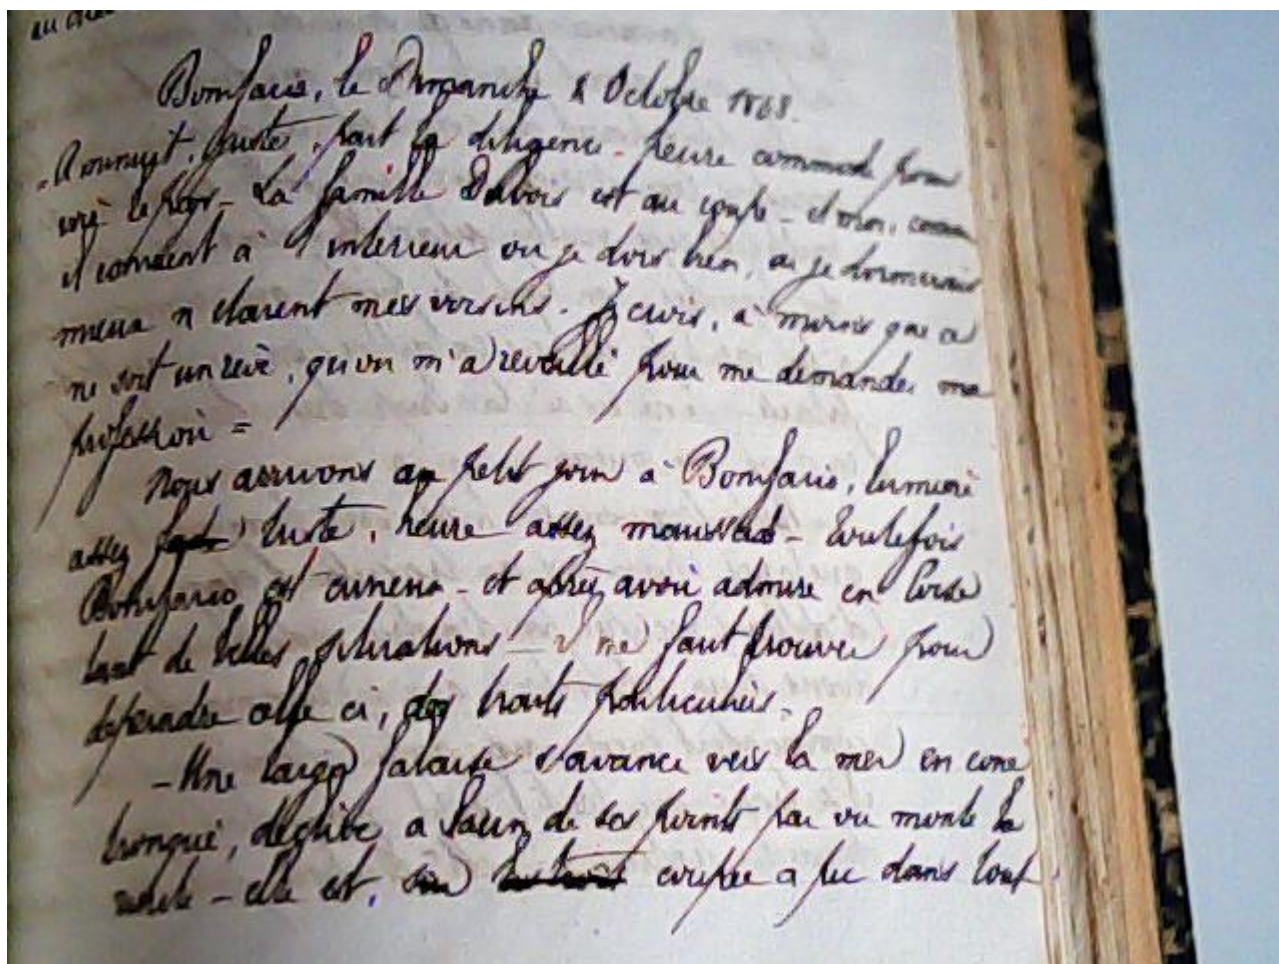 Bonifacio, le Dimanche 8 Octobre 1868.
A minuit juste, part la diligence. heure commode pour
voir le pays - La famille Dubois est au coupé - et moi, comme
il convient à l'interieur ou je dors bien, ou je dormirais
mieux n'etaient mes voisins. Je crois, à moins que ce
ne soit un rêve, qu'on m'a reveillé pour me demander ma
profession =
Nous arrivons au petit jour à Bonifacio, lumiere
assez triste, heure assez maussade - Toutefois
Bonifacio est curieux - et après avoir admiré en Corse
tant de belles situations - il me faut trouver pour
depeindre celle ci, des traits particuliers.
- Une large falaise s'avance vers la mer en cone
tronqué, déclive a l'un de ses points par ou monte la
route - elle est, coupée a pic dans tout